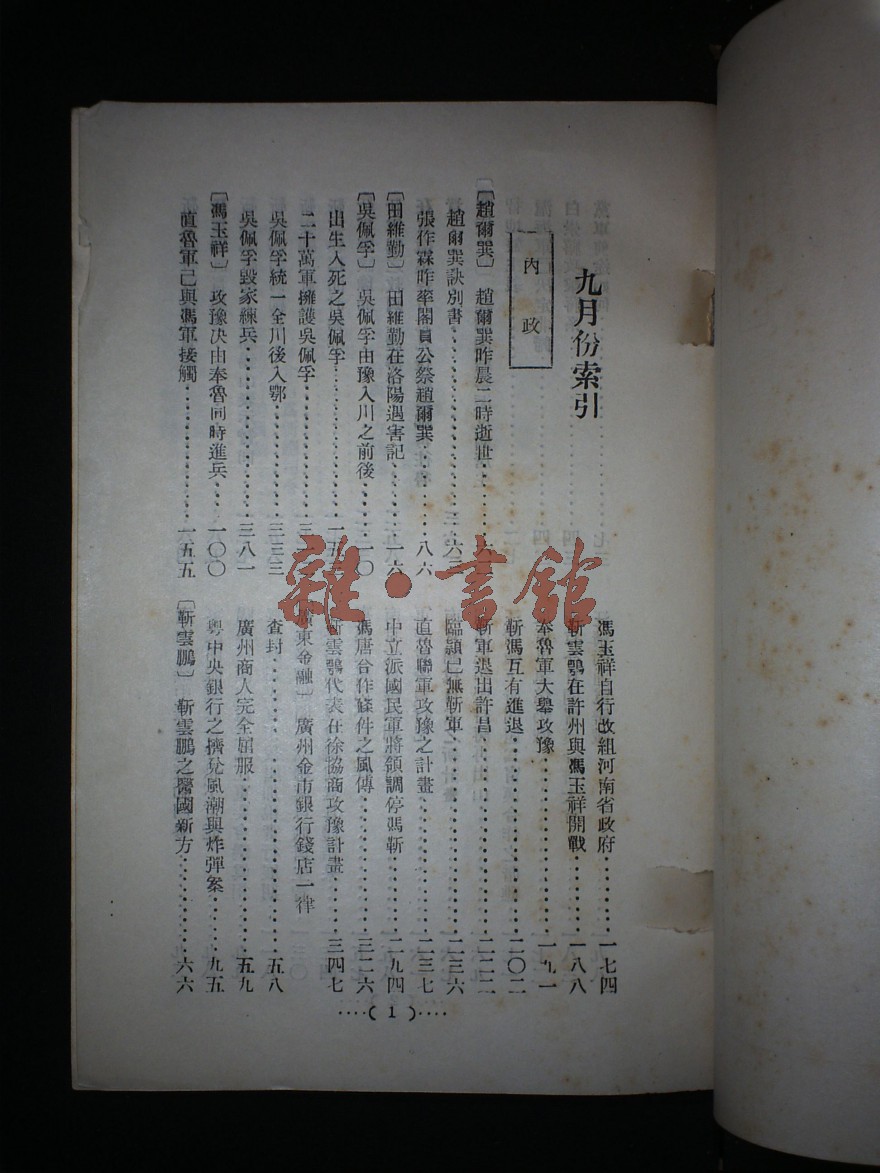 九月份索引
內政
〔趙爾巽〕趙爾巽昨晨二時逝世
趙爾巽訣別書
張作霖昨率閣員公祭趙爾巽……八六
〔田維勤〕田維勤在洛陽遇害記……一六
〔吳佩孚〕吳佩孚由豫入川之前後……一〇
出生入死之吳佩孚
二十萬軍擁護吳佩孚
吳佩孚統一全川後入鄂……三三三
吳佩孚毀家練兵……三八一
〔馮玉祥〕攻豫決由奉魯同時進兵……一〇〇
直魯軍已與馮軍接觸……一五五
馮玉祥自行改組河南省政府……一七四
靳雲鶚在許州與馮玉祥開戰……一八八
奉魯軍大舉攻豫……一九一
靳馮互有進退……二〇二
靳軍退出許昌……二二二
臨潁已無靳軍……二三六
直魯聯軍攻豫之計畫……二三七
中立派國民軍將領調停馮靳……二九四
馮唐合作條件之風傳……三二六
靳雲鶚代表在徐協商攻豫計畫……三四七
廣東金融〕廣州金市銀行錢店一律
查封……五八
廣州商人完全屈服……五九
粵中央銀行之擠兌風潮與炸彈案……九五
〔靳雲鵬〕靳雲鵬之醫國新方……六六
····( 1 )····
雜·書館